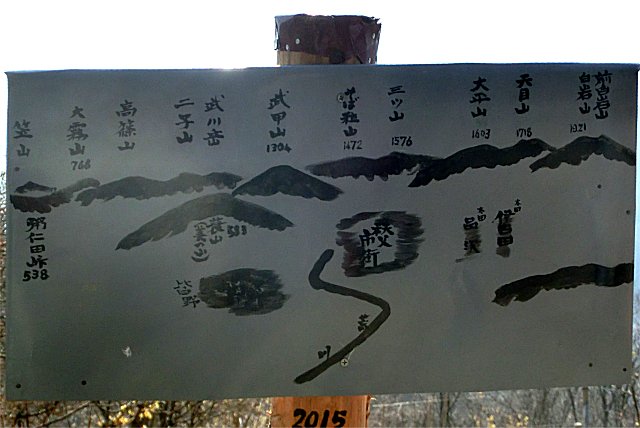 笠山
大霧山
766
高篠山
二子山
武川岳
武甲山
1304
社山
1472
三ツ山
1576
大平山
1603
天目山
1718
白岩山
1921
前白岩山
粥仁田峠
538
簑山
583
皆野
秩父
市町
荒
川
品沢
2015